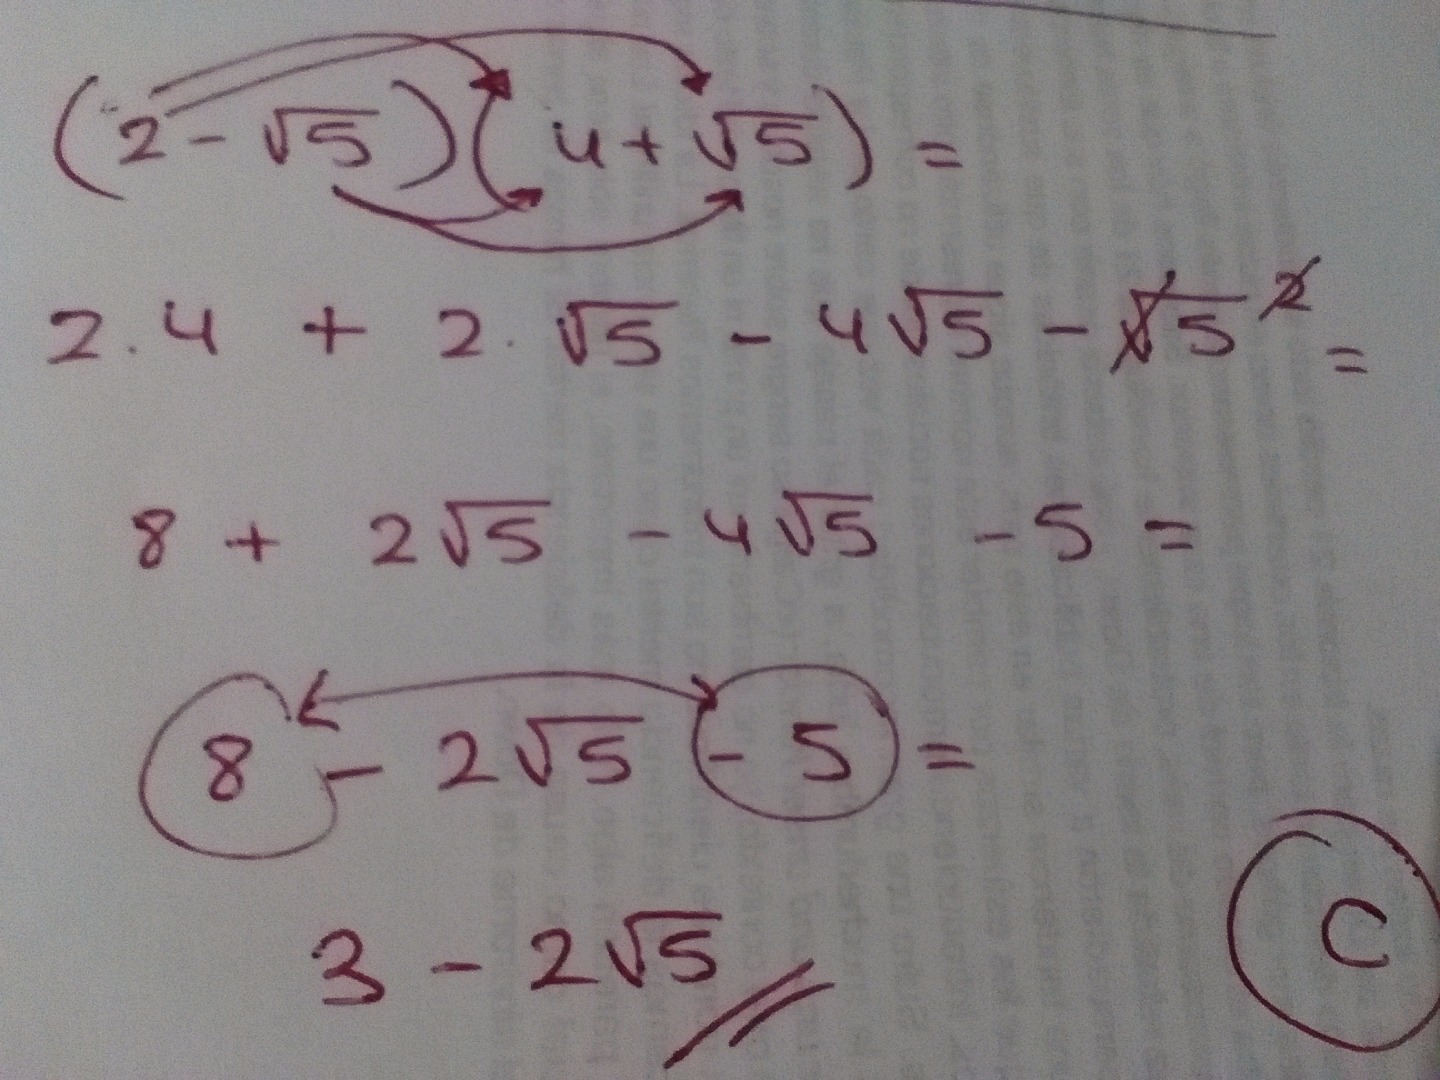 (2 - √5)(4 + √5) =
2.4 + 2.√5 - 4√5 - √5² =
8 + 2√5 - 4√5 - 5 =
8 - 2√5 - 5 =
3 - 2√5
C